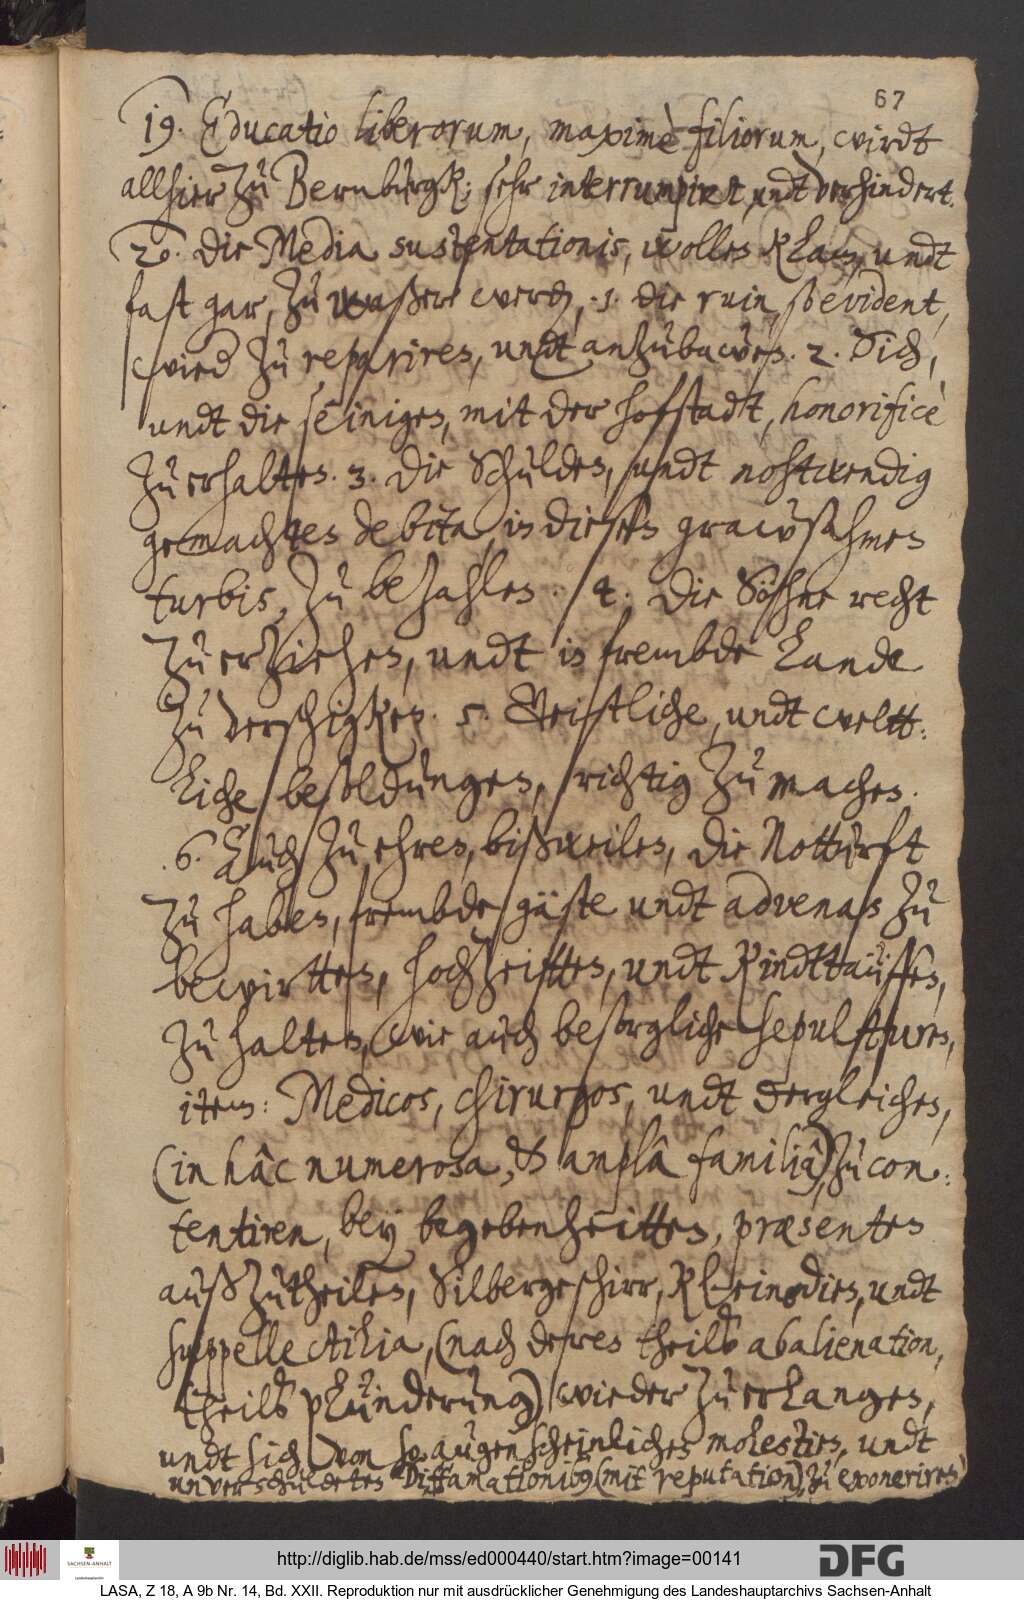 67
19. Educatio liberorum, maximè filiorum, wirdt
allhier zu Bernburgk: sehr interrumpirt, undt verhindert.
20. Die Media sustentationis, wollen klam, undt
fast gar, zu waßer werden, .1. die ruin, so evident,
wieder zu repariren, undt anzubawen. 2. Sich,
undt die seinigen, mit der hofstadt, honorificè
zu erhalten. 3. Die Schulden, undt nohtwendig
gemachten debita, in diesen grawsahmen
turbis, zu bezahlen. 4. Die Söhne recht
zu erziehen, undt in frembde Lande
zu verschigken. 5. Geistliche, undt weltt:
liche besoldungen, richtig zu machen.
.6. Auch zu ehren, bißweilen, die Notturft
zu haben, frembde gäste undt advenas zu
bewirtten, hochzeitten, undt Kindttäuffen,
zu halten, wie auch besorgliche sepulturen,
item: Medicos, chirurgos, undt dergleichen,
(in hâc numerosa, & amplâ familiâ) zu con:
tentiren, bey begebenheitten, præsenten
außzutheilen, Silbergeschirr, Kleinodien, undt
suppellectilia, (nach deren theilß abalienation,
theilß plünderung) wieder zu erlangen,
undt sich von so augenscheinlichen molestien, undt
unverschuldeten Diffamationibus (mit reputation) zu exoneriren
http://diglib.hab.de/mss/ed000440/start.htm?image=00141
SACHSEN-ANHALT
DFG
LASA, Z 18, A 9b Nr. 14, Bd. XXII. Reproduktion nur mit ausdrücklicher Genehmigung des Landeshauptarchivs Sachsen-Anhalt